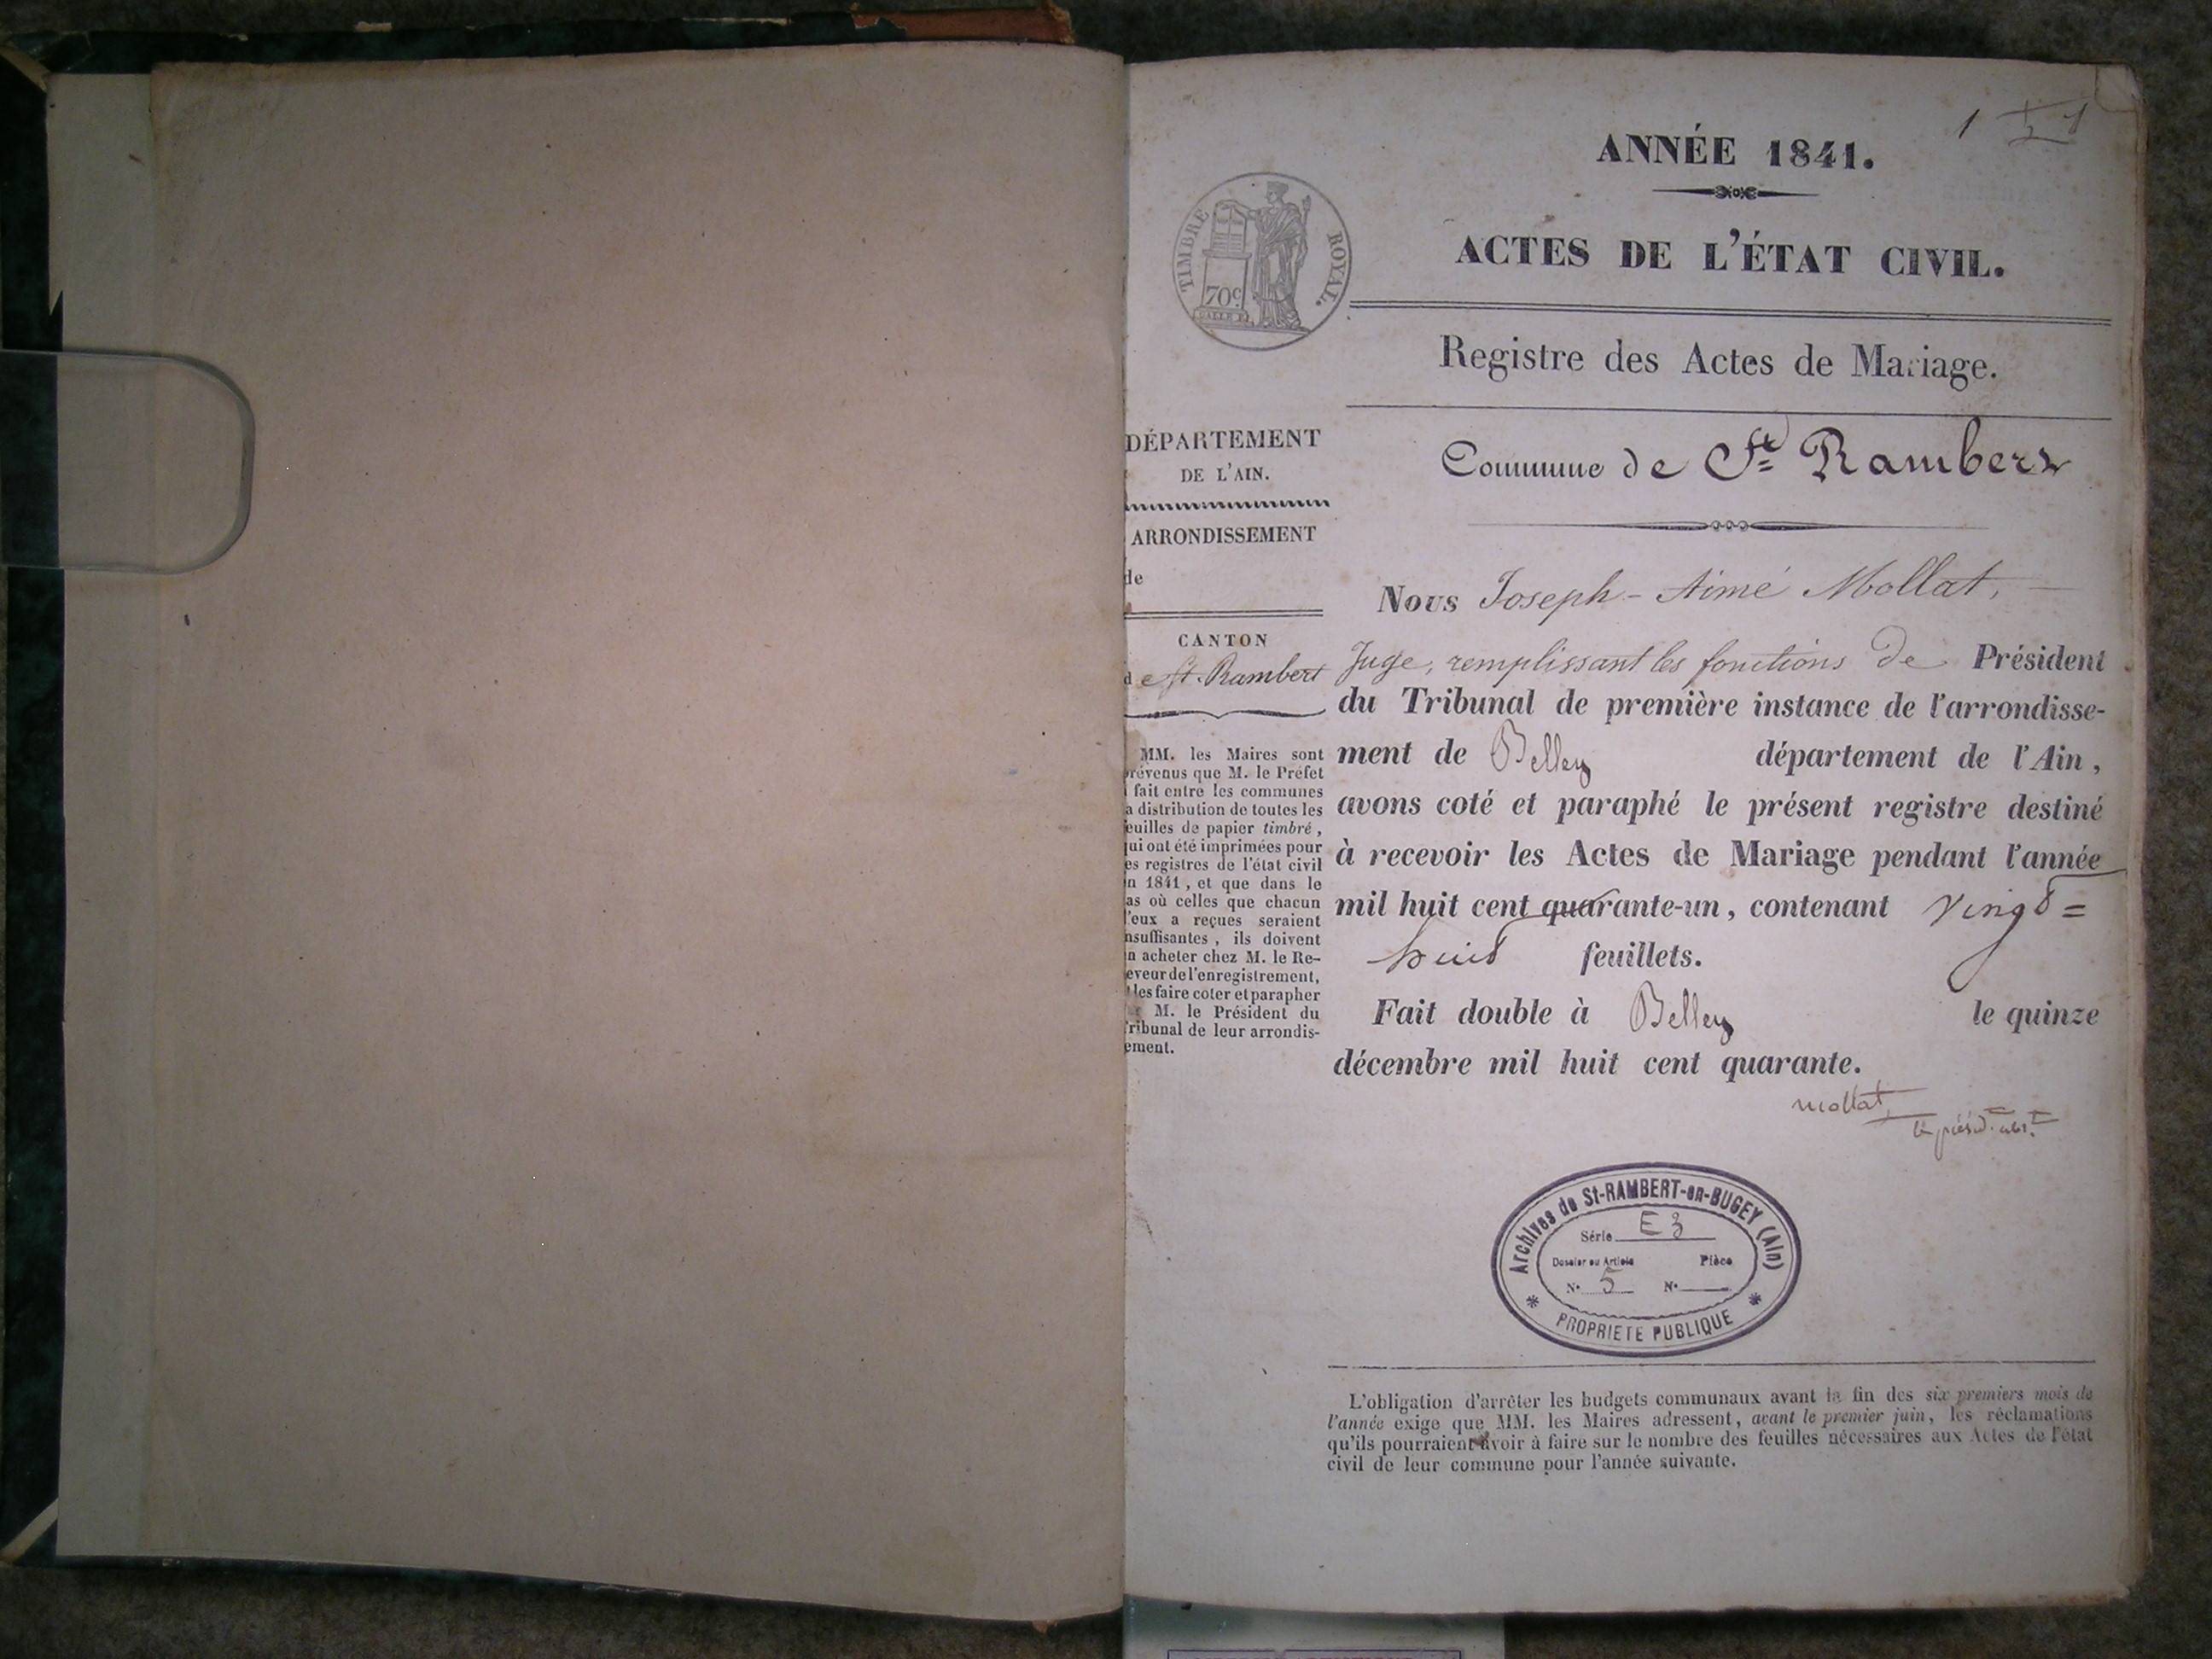 1
ANNÉE 1841.
TIMBRE ROYAL.
70c
ACTES DE L'ÉTAT CIVIL.
Registre des Actes de Mariage.
Commune de St Rambert
DÉPARTEMENT
DE L'AIN.
ARRONDISSEMENT
de
CANTON
de St. Rambert
MM. les Maires sont
prévenus que M. le Préfet
fait entre les communes
la distribution de toutes les
feuilles de papier timbré,
qui ont été imprimées pour
les registres de l'état civil
en 1841, et que dans le
cas où celles que chacun
d'eux a reçues seraient
insuffisantes, ils doivent
en acheter chez M. le Re-
ceveur de l'enregistrement,
les faire coter et parapher
M. le Président du
Tribunal de leur arrondis-
sement.
Nous Joseph-Aimé Mollat,
Juge, remplissant les fonctions de Président
du Tribunal de première instance de l'arrondisse-
ment de Belley département de l'Ain,
avons coté et paraphé le présent registre destiné
à recevoir les Actes de Mariage pendant l'année
mil huit cent quarante-un, contenant vingt=
huit feuillets.
Fait double à Belley le quinze
décembre mil huit cent quarante.
Mollat
Archives de St-RAMBERT-en-BUGEY (Ain)
Série E 3
Dossier ou Article Pièce
N° 5 N°
* PROPRIETE PUBLIQUE *
L'obligation d'arrêter les budgets communaux avant la fin des six premiers mois de
l'année exige que MM. les Maires adressent, avant le premier juin, les réclamations
qu'ils pourraient avoir à faire sur le nombre des feuilles nécessaires aux Actes de l'état
civil de leur commune pour l'année suivante.